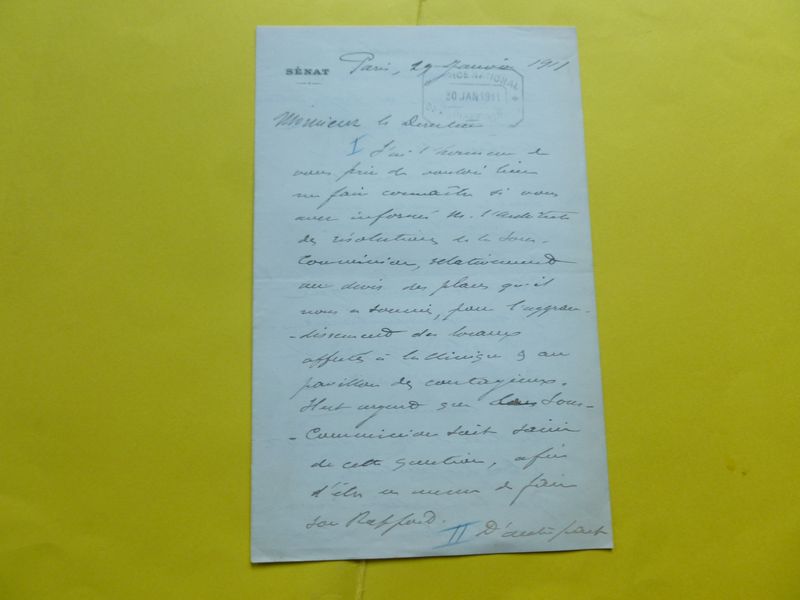 SÉNAT
Paris, 29 Janvier 1911
NATIONAL
30 JAN 1911
Monsieur le Directeur
I J'ai l'honneur de
vous prier de vouloir bien
me faire connaître si vous
avez informé M. l'architecte
des résolutions de la Sous-
Commission, relativement
au devis des plans qu'il
nous a soumis, pour l'aggran-
-dissement des locaux
affectés à la clinique & au
pavillon des contagieux.
Il est urgent que Sous-
-Commission soit saisie
de cette question, afin
d'être en mesure de faire
son Rapport.
II D'autre part